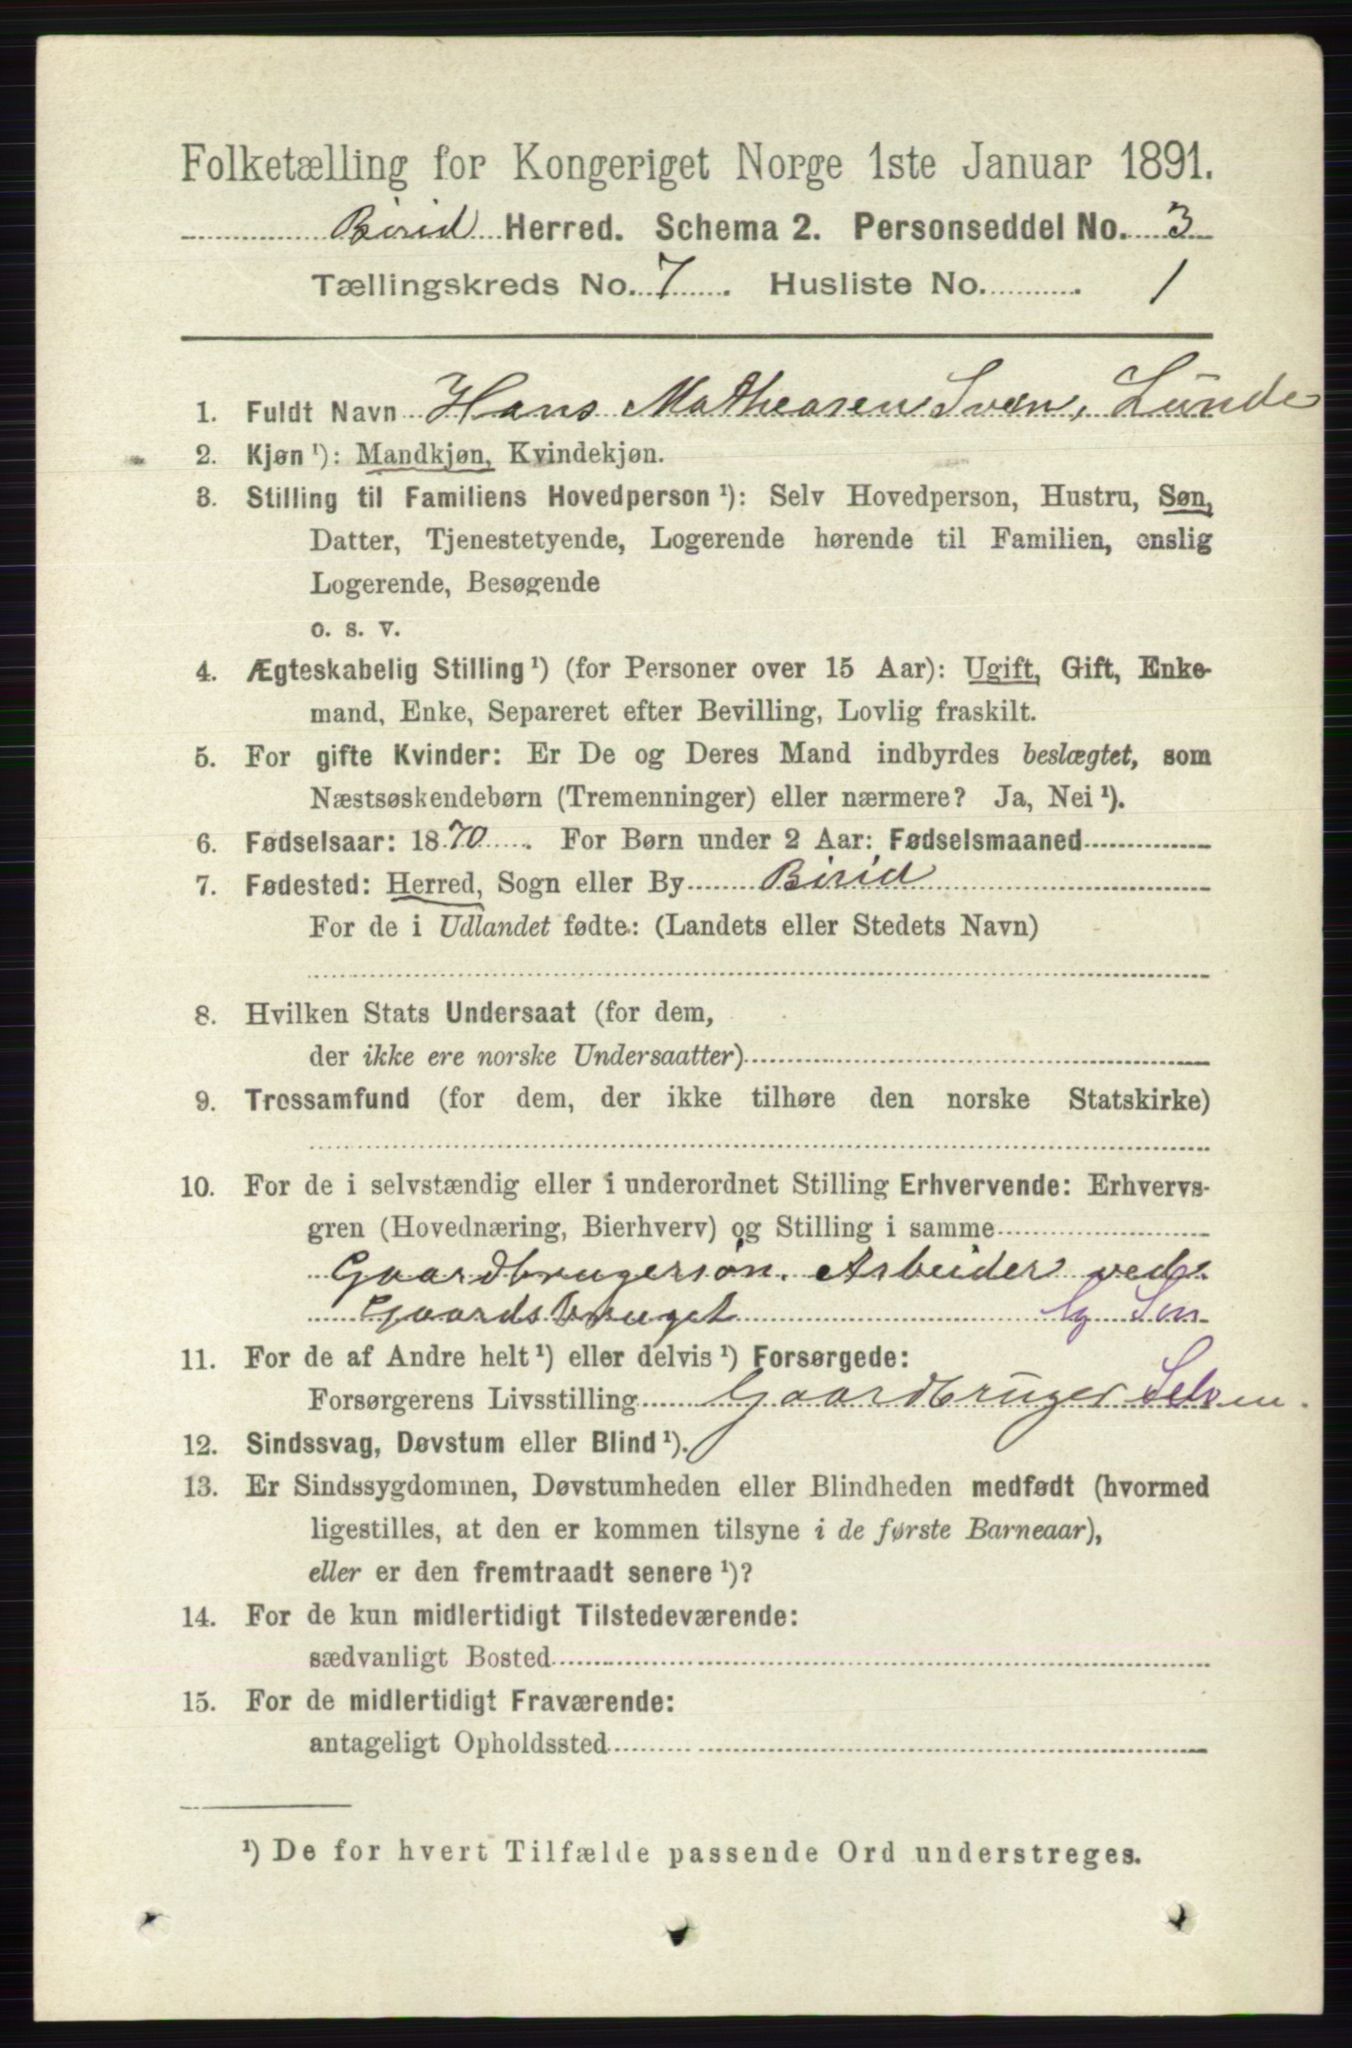 Folketælling for Kongeriget Norge 1ste Januar 1891.
Birid Herred. Schema 2. Personseddel No. 3
Tællingskreds No. 7 . Husliste No. . 1
1. Fuldt Navn Hans Matheasen Sveen, Lunde
2. Kjøn ¹): Mandkjøn, Kvindekjøn.
3. Stilling til Familiens Hovedperson ¹): Selv Hovedperson, Hustru, Søn,
Datter, Tjenestetyende, Logerende hørende til Familien, enslig
Logerende, Besøgende
o. s. v.
4. Ægteskabelig Stilling ¹) (for Personer over 15 Aar): Ugift, Gift, Enke-
mand, Enke, Separeret efter Bevilling, Lovlig fraskilt.
5. For gifte Kvinder: Er De og Deres Mand indbyrdes beslægtet, som
Næstsøskendebørn (Tremenninger) eller nærmere? Ja, Nei ¹).
6. Fødselsaar: 1870 . For Børn under 2 Aar: Fødselsmaaned
7. Fødested: Herred, Sogn eller By Birid
For de i Udlandet fødte: (Landets eller Stedets Navn)
8. Hvilken Stats Undersaat (for dem,
der ikke ere norske Undersaatter)
9. Trossamfund (for dem, der ikke tilhøre den norske Statskirke)
10. For de i selvstændig eller i underordnet Stilling Erhvervende: Erhvervs-
gren (Hovednæring, Bierhverv) og Stilling i samme
Gaardbrugersøn. Arbeider ved
Gaardsbruget
11. For de af Andre helt ¹) eller delvis ¹) Forsørgede:
Forsørgerens Livsstilling Gaardbruger
12. Sindssvag, Døvstum eller Blind ¹).
13. Er Sindssygdommen, Døvstumheden eller Blindheden medfødt (hvormed
ligestilles, at den er kommen tilsyne i de første Barneaar),
eller er den fremtraadt senere ¹)?
14. For de kun midlertidigt Tilstedeværende:
sædvanligt Bosted
15. For de midlertidigt Fraværende:
antageligt Opholdssted
¹) De for hvert Tilfælde passende Ord understreges.